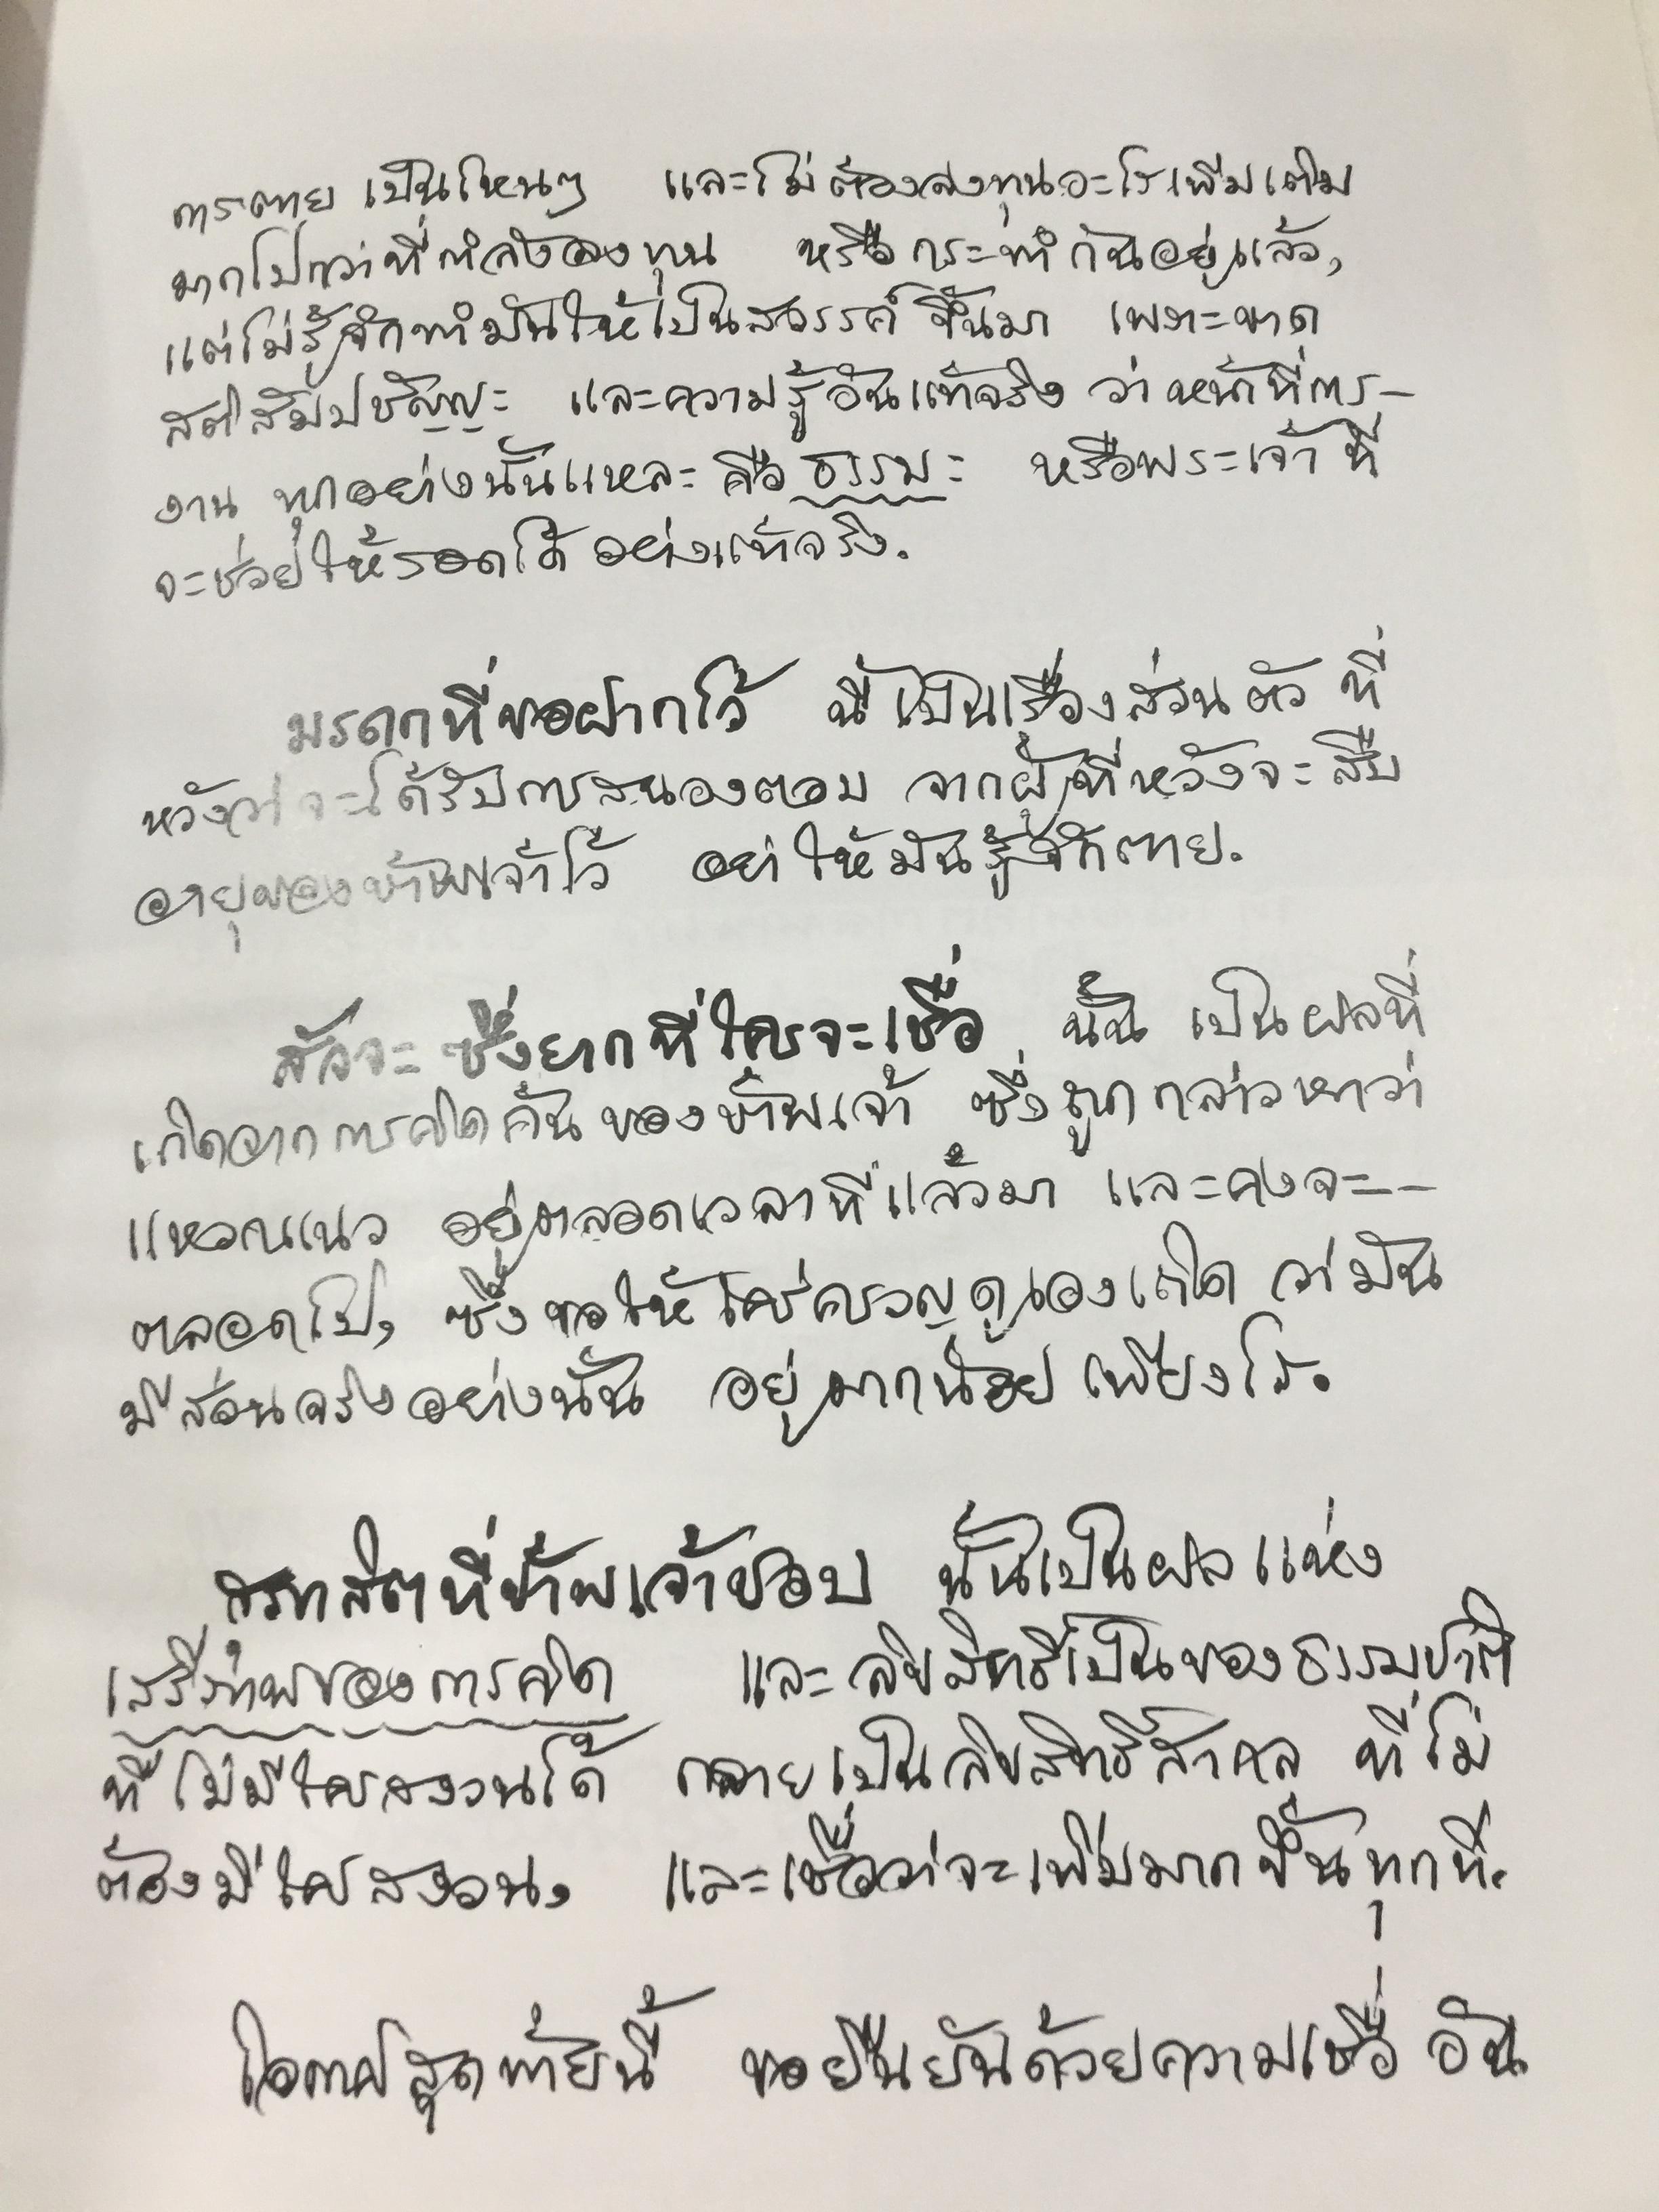 การตาย เป็นไหนๆ และไม่ต้องลงทุนอะไรเพิ่มเติม
มากไปกว่าที่กำลังลงทุน หรือกระทำกันอยู่แล้ว,
แต่ไม่รู้จักทำมันให้เป็นสวรรค์ขึ้นมา เพราะขาด
สติสัมปชัญญะ และความรู้อันแท้จริง ว่าหน้าที่การ-
งาน ทุกอย่างนั้นแหละ คือ ธรรมะ หรือพระเจ้า ที่
จะช่วยให้รอดได้ อย่างแท้จริง.
มรดกที่ขอฝากไว้ นี้เป็นเรื่องส่วนตัว ที่
หวังว่าจะได้รับการสนองตอบ จากผู้ที่หวังจะสืบ
อายุของข้าพเจ้าไว้ อย่าให้มันรู้จักตาย.
สัจจะ ซึ่งยากที่ใครจะเชื่อ นั้น เป็นผลที่
เกิดจากการคิดค้นของข้าพเจ้า ซึ่งถูกกล่าวหาว่า
แหวกแนว อยู่ตลอดเวลาที่แล้วมา และคงจะ--
ตลอดไป, ซึ่งขอให้ใคร่ครวญดูเองเถิด ว่ามัน
มีส่วนจริงอย่างนั้น อยู่มากน้อยเพียงไร.
สุรทสิตที่ข้าพเจ้าชอบ นั้นเป็นผลแห่ง
เสรีภาพของการคิด และลิขสิทธิ์เป็นของธรรมชาติ
ที่ไม่มีใครสงวนได้ กลายเป็นลิขสิทธิ์สากล ที่ไม่
ต้องมีใครสงวน, และเชื่อว่าจะเพิ่มมากขึ้นทุกที.
โอกาสสุดท้ายนี้ ขอยืนยันด้วยความเชื่อ อัน